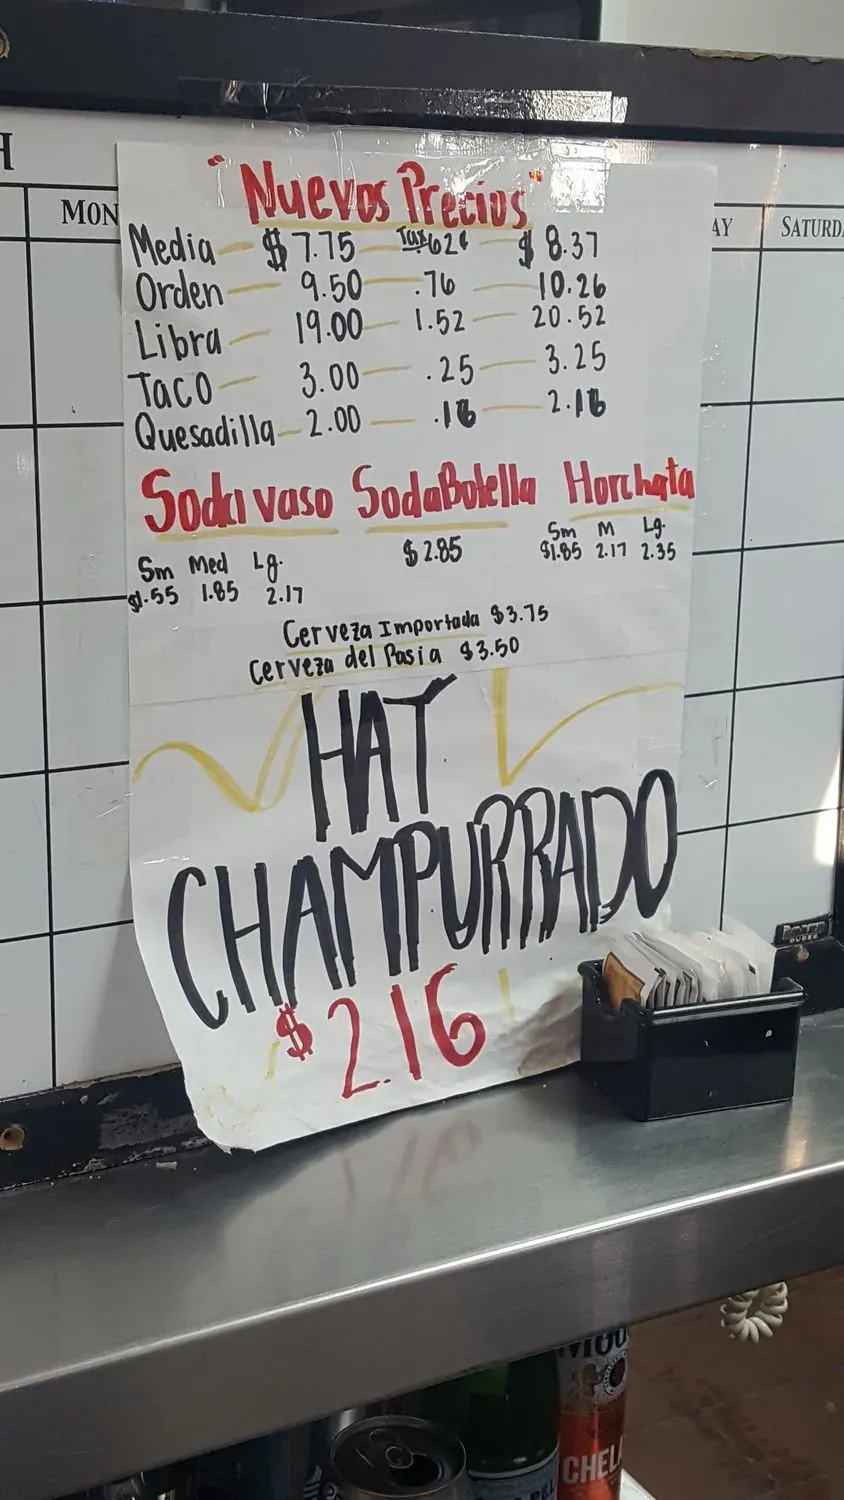 H
MON
AY
SATURD
"Nuevos Precios"
Media $7.75 Tax 62¢ $8.37
Orden 9.50 .76 10.26
Libra 19.00 1.52 20.52
Taco 3.00 .25 3.25
Quesadilla 2.00 .16 2.16
Soda vaso Soda Botella Horchata
Sm Med Lg.
$1.55 1.85 2.17
$2.85
Sm M Lg.
$1.85 2.17 2.35
Cerveza Importada $3.75
Cerveza del Pasia $3.50
HAT
CHAMPURRADO
$2.16
CHEL